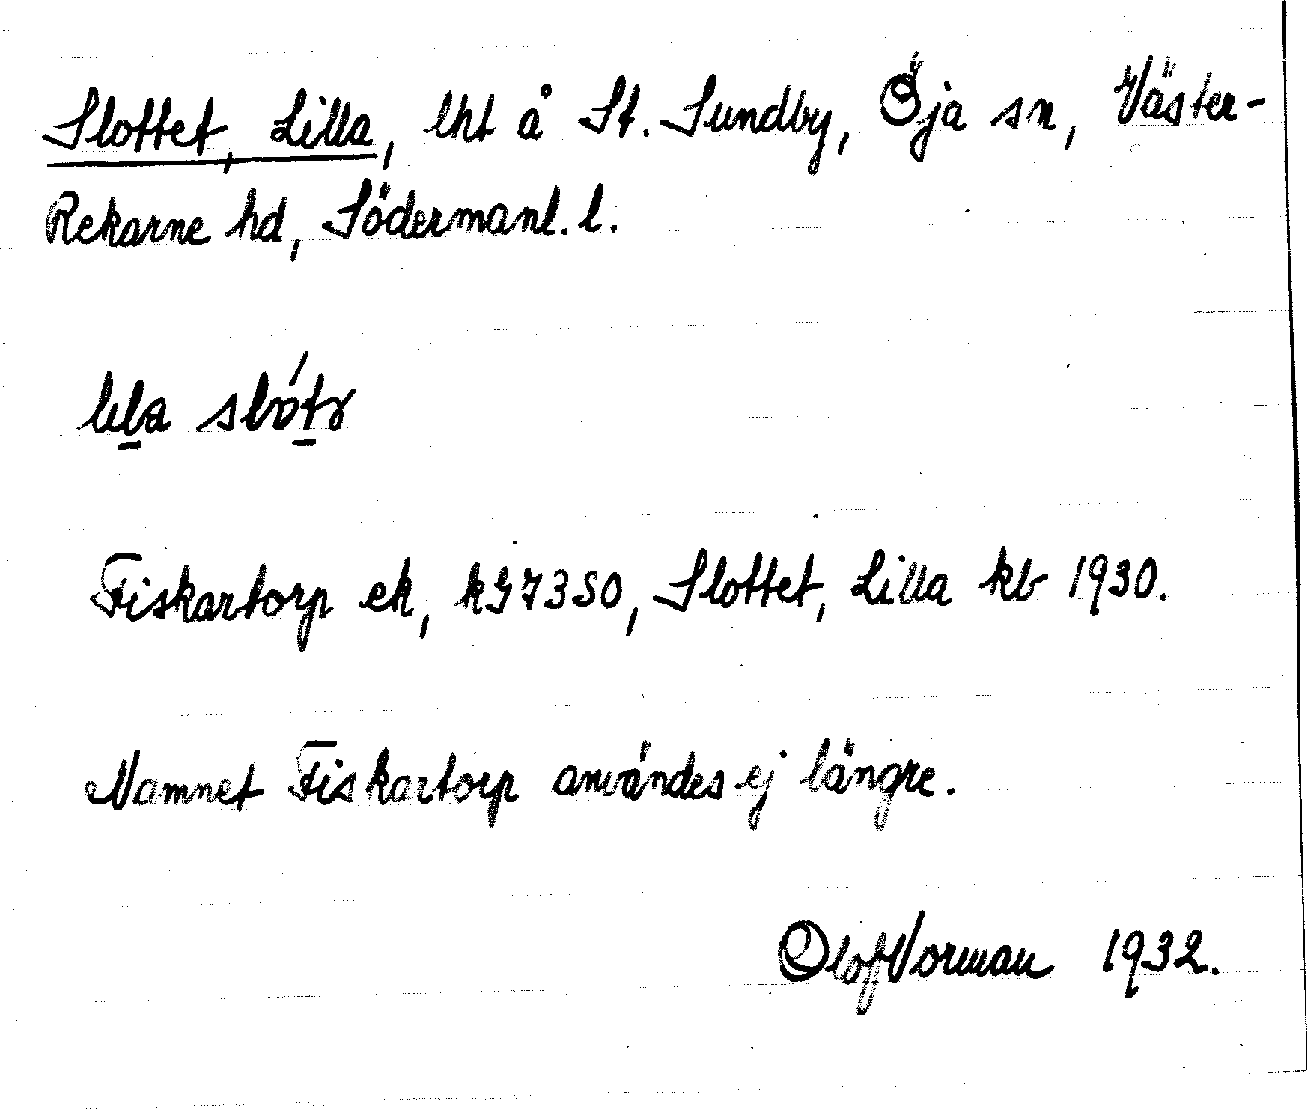 Slottet, Lilla, lht å St. Sundby, Öja sn, Väster-
Rekarne hd, Södermanl. l.
lila slótə
Fiskartorp ek, kG7350, Slottet, Lilla kb 1930.
Namnet Fiskartorp användes ej längre.
Olof Norman 1932.